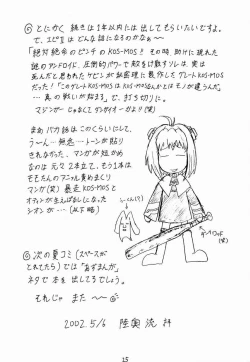 ◎ とにかく 続きは1年以内には出してもらいたいですよ。
で、エピⅡは どんな話になるのかなぁ〜
「絶対絶命のピンチのKOS-MOS! その時、助けに現れた
謎のアンドロイド、圧倒的パワーで敵をけ散すソレは、実は
死んだと思われたケビンが秘密裡に製作したグレートKOS-MOS
だった!「このグレートKOS-MOSはKOS-MOSなんかとはモノが違うんだ。
…真の戦いが始まる」で、打ち切りに。
マジンガーじゃなくてダンガイオーかよ!(笑)
まぁバカ話はこのくらいにして、
う〜ん…無念…トーンが貼り
きれなかった。マンガが短かめ
なのは 元々2本立て。もう1本は
そもそもの アニマル責めまくり
マンガ(笑) 暴走KOS-MOSと
オヤジが生えっぱなしになった
シオンが…(以下略)
◎ 次の夏コミ(スペースが
とれてたら)では「あずまんが」
ネタで本を出してるでしょう。
それじゃ また 〜
2002.5/6 陸奥流 拝
15